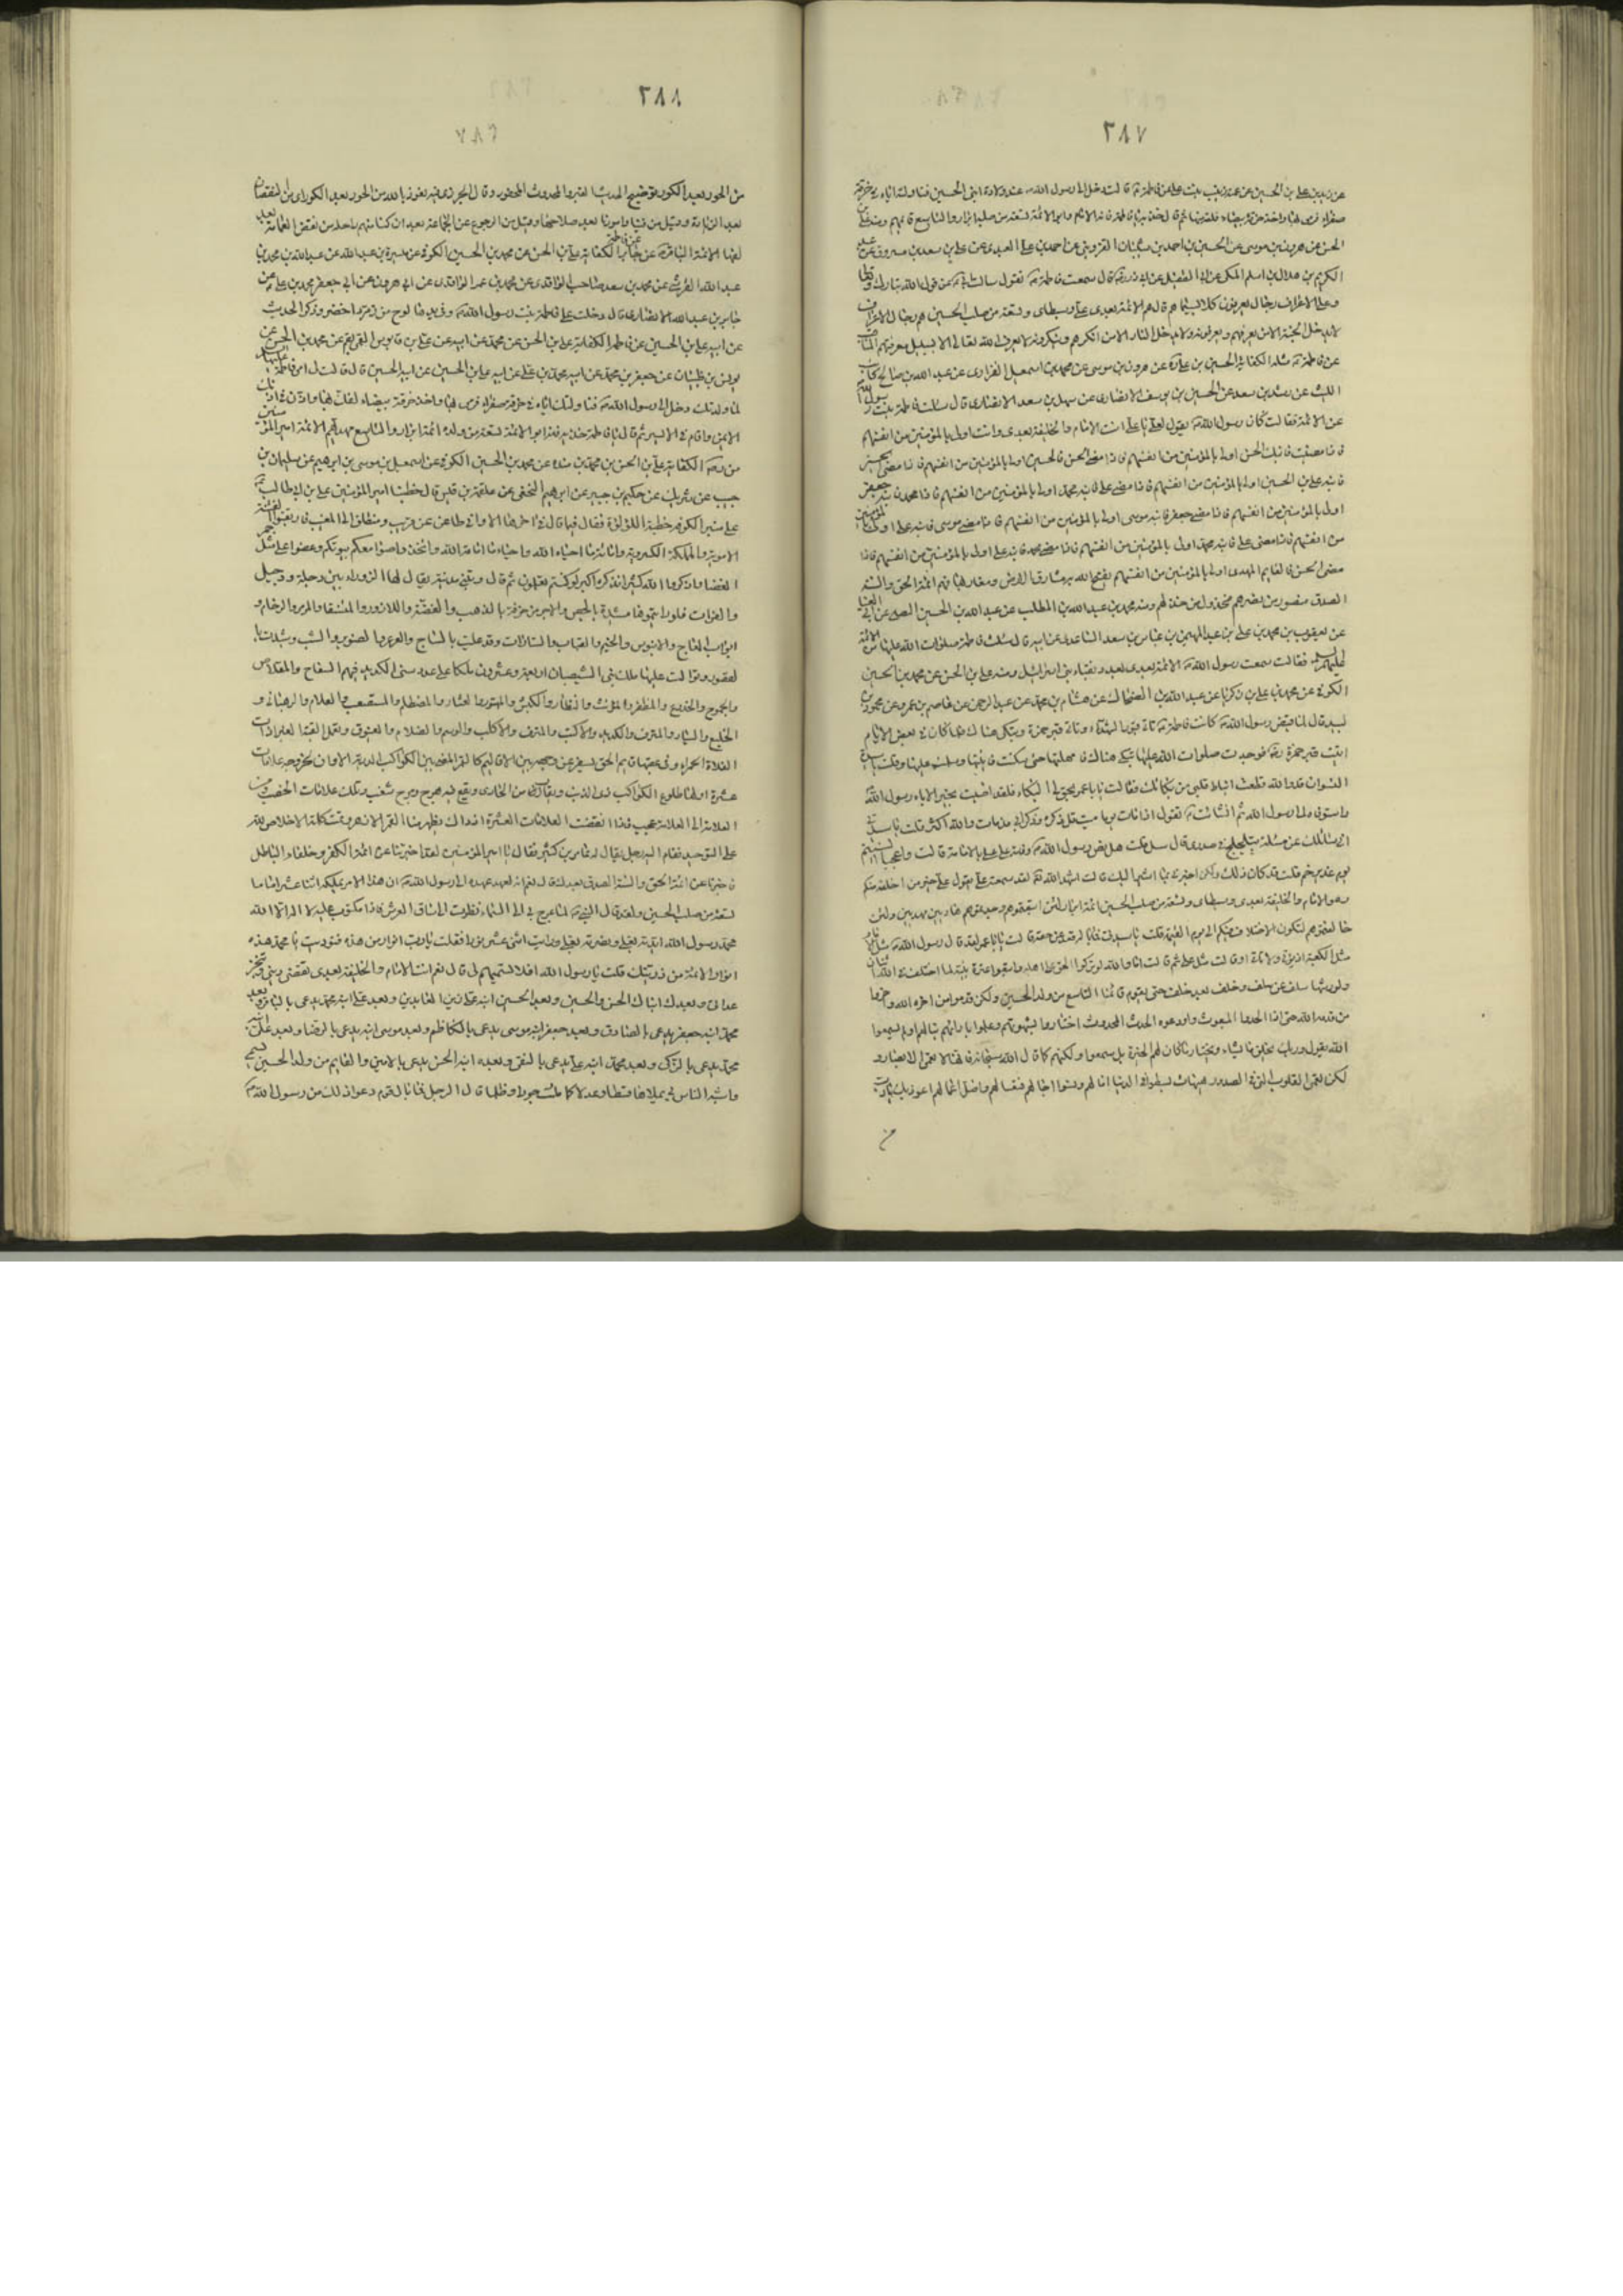 ٢٨٧
عن زيد بن علي بن الحسين عن عمته زينب بنت علي عن فاطمة ع قالت دخل الي رسول الله ص عند ولادة ابني الحسين فناولته اياه في خرقة
صفراء فرمى بها واخذ خرقة بيضاء فلفه بها ثم قال خذيه يا فاطمة فانه الامام وابو الائمة تسعة من صلبه ابرار والتاسع قائمهم
الحسن عن هرون بن موسى عن الحسين بن احمد بن شيبان القزويني عن احمد بن علي العبدي عن علي بن سعد بن مسروق عن عبد
الكريم بن هلال بن اسلم المكي عن ابي الطفيل عن ابي ذر رض قال سمعت فاطمة ع تقول سالت ابي ص عن قول الله تبارك وتعالى
وعلى الاعراف رجال يعرفون كلا بسيماهم قال هم الائمة بعدي علي وسبطاي وتسعة من صلب الحسين هم رجال الاعراف
لا يدخل الجنة الا من يعرفهم ويعرفونه ولا يدخل النار الا من انكرهم وينكرونه لا يعرف الله تعالى الا بسبيل معرفتهم
عن فاطمة ع مثله الكفاية الحسين بن علي عن هرون بن موسى عن محمد بن اسمعيل الفزاري عن عبد الله بن صالح كاتب
الليث عن رشد بن سعد عن الحسين بن يوسف الانصاري عن سهل بن سعد الانصاري قال سالت فاطمة بنت رسول الله
عن الائمة فقالت كان رسول الله ص يقول لعلي يا علي انت الامام والخليفة بعدي وانت اولى بالمؤمنين من انفسهم
فاذا مضيت فابنك الحسن اولى بالمؤمنين من انفسهم فاذا مضى الحسن فالحسين اولى بالمؤمنين من انفسهم فاذا مضى الحسين
فابنه علي بن الحسين اولى بالمؤمنين من انفسهم فاذا مضى علي فابنه محمد اولى بالمؤمنين من انفسهم فاذا مضى محمد فابنه جعفر
اولى بالمؤمنين من انفسهم فاذا مضى جعفر فابنه موسى اولى بالمؤمنين من انفسهم فاذا مضى موسى فابنه علي اولى بالمؤمنين
من انفسهم فاذا مضى علي فابنه محمد اولى بالمؤمنين من انفسهم فاذا مضى محمد فابنه علي اولى بالمؤمنين من انفسهم فاذا
مضى الحسن فالقايم المهدي اولى بالمؤمنين من انفسهم يفتح الله به مشارق الارض ومغاربها فهم ائمة الحق والسنة
الصدق منصور من نصرهم مخذول من خذلهم ومنه محمد بن عبد الله بن المطلب عن عبد الله بن الحسين
عن يعقوب بن محمد بن علي بن عبد المهيمن بن عباس بن سعد الساعدي عن ابيه قال سالت فاطمة صلوات الله عليها عن الائمة
عليهم السلام فقالت سمعت رسول الله ص الائمة بعدي بعدد نقباء بني اسرائيل ومنه علي بن الحسن عن محمد بن الحسين
الكوفي عن محمد بن علي بن زكريا عن عبد الله بن الضحاك عن هشام بن محمد عن عبد الرحمن عن عاصم بن عمرو عن محمود بن
لبيد قال لما قبض رسول الله ص كانت فاطمة ع تاتي قبور الشهداء وتاتي قبر حمزة وتبكي هناك فلما كان في بعض الايام
اتيت قبر حمزة رض فوجدت صلوات الله عليها تبكي هناك فامهلتها حتى سكنت فاتيتها وسلمت عليها وقلت يا سيدة
النسوان قد والله قطعت انياط قلبي من بكائك فقالت يا با عمر يحق لي البكاء فلقد اصبت بخير الاباء رسول الله
واشوقاه الى رسول الله ثم انشات ع تقول اذا مات يوما ميت قل ذكره وذكر ابي مذ مات والله اكثر قلت يا سيدتي
اني سائلك عن مسئلة تتلجلج في صدري قال سل قلت هل نص رسول الله ص قبل وفاته على علي بالامامة قالت واعجبا انسيتم
يوم غدير خم قلت قد كان ذلك ولكن اخبريني بما اشير اليك قالت اشهد الله تعالى لقد سمعته يقول علي خير من اخلفه فيكم
وهو الامام والخليفة بعدي وسبطاي وتسعة من صلب الحسين ائمة ابرار لئن اتبعتموهم وجدتموهم هادين مهديين ولئن
خالفتموهم ليكون الاختلاف فيكم الى يوم القيمة قلت يا سيدتي فما باله قعد عن حقه قالت يا با عمر لقد قال رسول الله ص مثل الامام
مثل الكعبة اذ تؤتى ولا تاتي او قالت مثل علي ثم قالت اما والله لو تركوا الحق على اهله واتبعوا عترة نبيه لما اختلف في الله اثنان
ولورثها سلف عن سلف وخلف بعد خلف حتى يقوم قائمنا التاسع من ولد الحسين ولكن قدموا من اخره الله واخروا
من قدمه الله حتى اذا الحدوا المبعوث واودعوه الجدث المجدوث اختاروا بشهوتهم وعملوا بارائهم تبا لهم اولم يسمعوا
الله يقول وربك يخلق ما يشاء ويختار ما كان لهم الخيرة بل سمعوا ولكنهم كما قال الله سبحانه فانها لا تعمى الابصار و
لكن تعمى القلوب التي في الصدور هيهات بسطوا في الدنيا امالهم ونسوا اجالهم فتعسا لهم واضل اعمالهم اعوذ بك يا رب
من
٢٨٨
من الحور بعد الكور توضيح الجدث القبر والمجدوث المحفور وقال الجزري فيه نعوذ بالله من الحور بعد الكور اي من النقصان
بعد الزيادة وقيل من فساد امورنا بعد صلاحها وقيل من الرجوع عن الجماعة بعد ان كنا منهم واصله من نقض العمامة بعد
لفها
عبد الله القرشي عن محمد بن سعد صاحب الواقدي عن محمد بن عمر الواقدي عن ابي هرون عن ابي جعفر محمد بن علي ع عن
جابر بن عبد الله الانصاري قال دخلت على فاطمة بنت رسول الله ص وفي يدها لوح من زمرد اخضر وذكر الحديث
يونس بن ظبيان عن جعفر بن محمد عن ابيه محمد بن علي عن ابيه علي بن الحسين عن ابيه الحسين قال قالت لي امي فاطمة
لما ولدتك دخل الي رسول الله ص فناولتك اياه في خرقة صفراء فرمى بها واخذ خرقة بيضاء لفك بها واذن في اذنك
الايمن واقام في الايسر ثم قال يا فاطمة خذيه فانه ابو الائمة تسعة من ولده ائمة ابرار والتاسع مهديهم
الكفاية علي بن الحسن بن محمد بن منده عن محمد بن الحسين الكوفي عن اسمعيل بن موسى بن ابرهيم عن سليمان بن
حبيب عن شريك عن حكيم بن جبير عن ابرهيم النخعي عن علقمة بن قيس قال خطبنا امير المؤمنين علي بن ابي طالب ع
على منبر الكوفة خطبة اللؤلؤة فقال فيما قال في اخرها الا واني ظاعن عن قريب ومنطلق الى المغيب فارتقبوا الفتنة
الاموية والمملكة الكسروية واماتة ما احياه الله واحياء ما اماته الله واتخذوا صوامعكم بيوتكم وعضوا على مثل جمر
الغضا واذكروا الله كثيرا فذكره اكبر لو كنتم تعلمون ثم قال وتبنى مدينة يقال لها الزوراء بين دجلة ودجيل
والفرات فلو رايتموها مشيدة بالجص والاجر مزخرفة بالذهب والفضة واللازورد والمرمر والرخام و
ابواب العاج والابنوس والخيم والقباب والستارات وقد عليت بالساج والعرعر والصنوبر والشب وشيدت
بالقصور وتوالت عليها ملك بني الشيصبان اربعة وعشرون ملكا على عدد سني الكديد فيهم السفاح والمقلاص
والجموح والخدوع والمظفر والمؤنث والنظار والكبش والمتهور والعشار والمصطلم والمستصعب والعلام والرهباني و
الخليع والسيار والمترف والكديد والاكتب والمترف والاكلب والوسيم والظلام والعيوق وتعمل القبة الغبراء ذات
الفلاة الحمراء وفي عقبها قايم الحق يسفر عن وجهه بين الاقاليم كالقمر المضيء بين الكواكب الدرية الا وان لخروجه علامات
عشرة اولها طلوع الكوكب ذي الذنب ويقارب من الحادي ويقع فيه هرج ومرج وشغب وتلك علامات الخصب ومن
العلامة الى العلامة عجب فاذا انقضت العلامات العشرة اذ ذاك يظهر بنا القمر الازهر وتمت كلمة الاخلاص لله
على التوحيد فقام اليه رجل يقال له عامر بن كثير فقال يا امير المؤمنين لقد اخبرتنا عن ائمة الكفر وخلفاء الباطل
فاخبرنا عن ائمة الحق والسنة الصدق بعدك قال نعم انه لعهد عهده الي رسول الله ص ان هذا الامر يملكه اثنا عشر اماما
تسعة من صلب الحسين ولقد قال النبي ص لما عرج بي الى السماء نظرت الى ساق العرش فاذا مكتوب عليه لا اله الا الله
محمد رسول الله ايدته بعلي ونصرته بعلي ورايت اثني عشر نورا فقلت يا رب انوار من هذه فنوديت يا محمد هذه
انوار الائمة من ذريتك قلت يا رسول الله افلا تسميهم لي قال نعم انت الامام والخليفة بعدي تقضي ديني وتنجز
عداتي وبعدك ابناك الحسن والحسين وبعد الحسين ابنه علي زين العابدين وبعد علي ابنه محمد يدعى بالباقر وبعد
محمد ابنه جعفر يدعى بالصادق وبعد جعفر ابنه موسى يدعى بالكاظم وبعد موسى ابنه يدعى بالرضا وبعد علي ابنه
محمد يدعى بالزكي وبعد محمد ابنه علي يدعى بالنقي وبعده ابنه الحسن يدعى بالامين والقايم من ولد الحسين سميي
واشبه الناس بي يملاها قسطا وعدلا كما ملئت جورا وظلما قال الرجل فما بال قوم دعوا ذلك من رسول الله ص